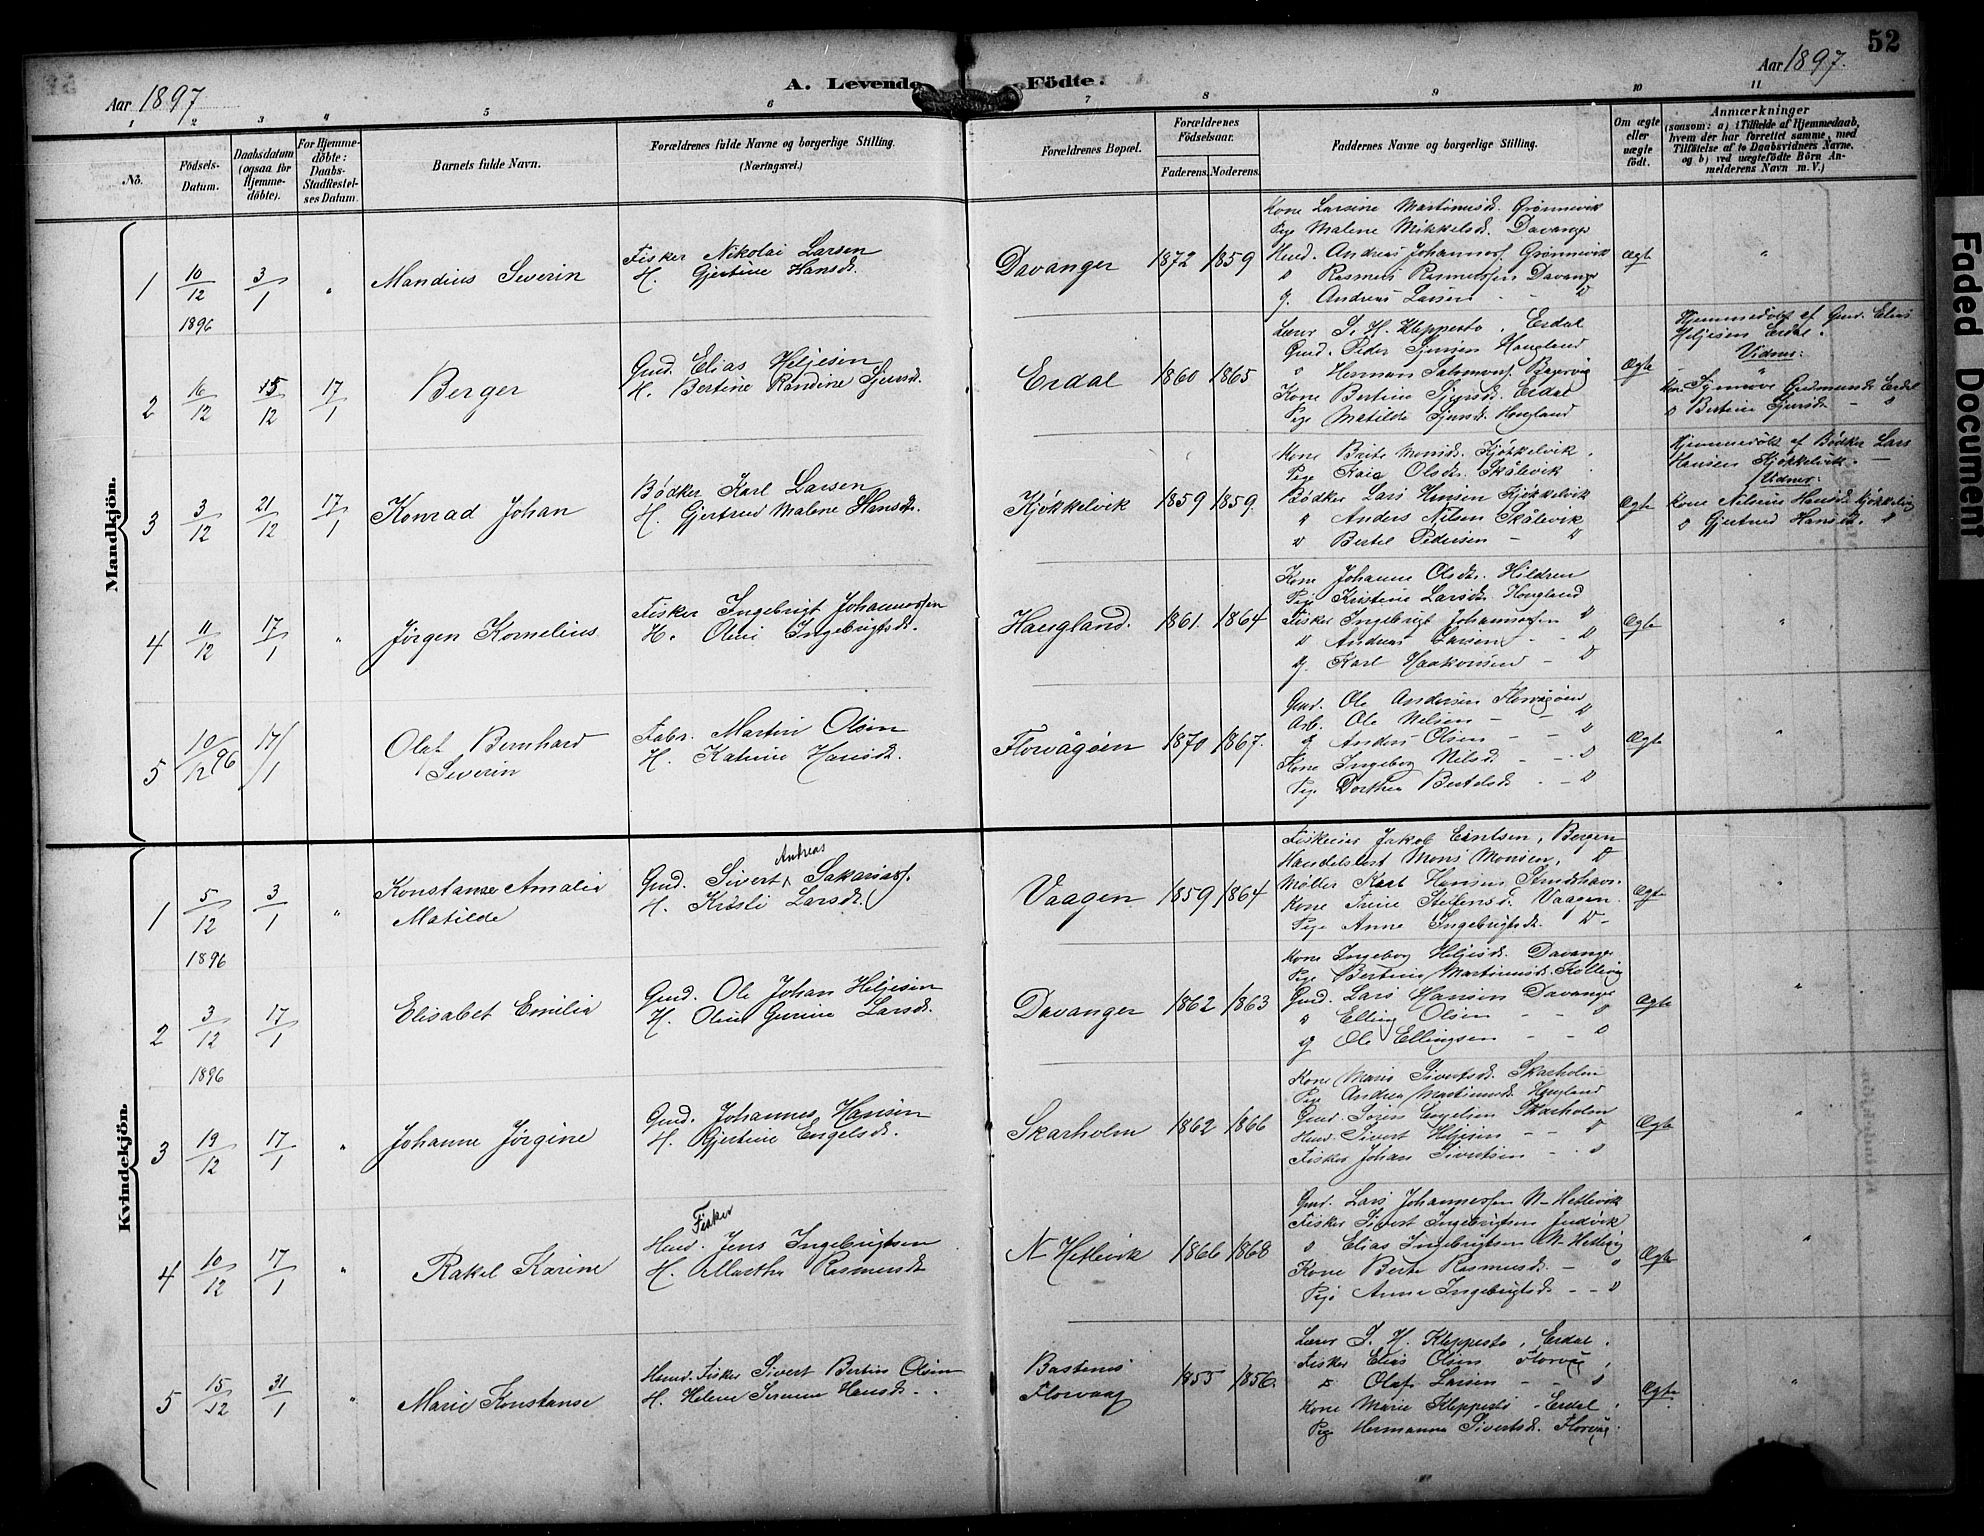 52
Aar 1897
A. Levende Födte.
Aar 1897.
1 2 3 4 5 6 7 8 9 10 11
No.
Födsels-Datum.
Daabsdatum (ogsaa for Hjemmedöbte).
For Hjemmedöbte: Daabs-Stadfæstelses Datum.
Barnets fulde Navn.
Forældrenes fulde Navne og borgerlige Stilling. (Næringsvei.)
Forældrenes Bopæl.
Forældrenes Födselsaar.
Faderens. Moderens.
Faddernes Navne og borgerlige Stilling.
Om ægte eller uægte födt.
Anmærkninger
(saasom: a) i Tilfælde af Hjemmedaab, hvem der har forrettet samme, med Tilföielse af to Daabsvidners Navne, og b) ved uægtefödte Börn Anmelderens Navn m. V.)
Mandkjön.
1 10/12 1896 3/1 " Mandius Severin
Fisker Nikolai Larsen
H. Gjertine Hansd.
Davanger 1872 1859
Kone Larsine Martinusd. Grønnevik
Pige Malene Mikkelsd. Davanger
Huusd. Andreas Johannes. Grønnevik
" Rasmus Rasmussen Davanger
g. Andreas Larsen - "
Ægte "
2 16/12 25/12 17/1 Berger
Gmd. Elias Heljesen
H. Bertine Randine Sjursd.
Erdal 1860 1865
Lærer S. H. Kleppestø, Erdal
Gmd. Peder Sjursen Haugland
" Herman Salomons.
Kone Bertine Sjursd. Erdal
Pige Matilde Sjursd. Haugland
Ægte
Hjemmedøbt af Gmd. Elias Heljesen Erdal.
Vidner:
Kone Synnøve Gudmunds. Erdal
" Bertine Sjursd. - "
3 3/12 21/12 17/1 Konrad Johan
Bødker Karl Larsen
H. Gjertrud Malene Hansd.
Kjøkkelvik 1859 1859.
Kone Brite Monsd. Kjøkkelvik
Pige Kaia Olsd. Skålevik
Bødker Lars Hansen Kjøkkelvik
" Anders Nilsen Skålevik
" Bertel Pedersen - "
Ægte
Hjemmedøbt af Bødker Lars Hansen Kjøkkelvik.
Vidner:
Kone Nilsine Hansd. Kjøkkelvig
" Gjertrud Hansd. "
4 11/12 17/1 " Jørgen Kornelius
Fisker Ingebrigt Johannessen
H. Oline Ingebrigtsd.
Haugland. 1861. 1864
Kone Johanne Olsd. Hildren
Pige Kristine Larsd. Haugland
Fisker Ingebrigt Johannessen "
" Andreas Larsen - "
g. Karl Haakonsen - "
Ægte "
5 10/12 96 17/1 Olaf Bernhard Severin
Fabr. Martin Olsen
H. Katrine Hansd.
Florvågøen 1870 1867.
Gmd. Ole Andersen Florvågøen
Arb. Ole Nilsen - - "
g Anders Olsen - - "
Kone Ingeborg Nilsd. - - "
Pige Dorthea Bertelsd. - - "
Ægte "
Kvindekjön.
1 5/12 1896 3/1 " Konstanse Amalia Matilde
Gmd. Sivert Andreas Sakarias.
H. Kristi Larsd.
Vaagen 1859 1864
Jakob Eintsen, Bergen
Mons Monsen, "
Møller Karl Hansen Strudshavn.
Kone Trine Steffensd. Vaagen.
Pige Anne Ingebrigtsd. "
Ægte "
2 3/12 1896 17/1 Elisabet Emilia
Gmd. Ole Johan Heljesen
H. Oline Gurine Larsd.
Davanger 1862 1863
Kone Ingeborg Heljesd. Davanger
Pige Bertine Martinusd.
Gmd. Lars Hansen Davanger
" Elling Olsen - - "
g Ole Ellingsen - - "
Ægte "
3 19/12 17/1 " Johanne Jørgine
Gmd. Johannes Hansen
H. Gjertine Engelsd.
Skarholm 1862 1866
Kone Maris Sivertsd. Skarholm
Pige Andrea Martinusd. Haugland
Gmd. Søren Engelsen Skarholm
Huusd. Sivert Heljesen - - "
Fisker Johan Sivertsen - - "
Ægte "
4 10/12 17/1 " Rakel Karine
Fisker
Huusd. Jens Ingebrigtsen
H. Martha Rasmusd.
N Hetlevik 1866 1868
Gmd. Lars Johannessen N-Hetlevik
Fisker Sivert Ingebrigtsen
" Elias Ingebrigtsen N-Hetlevig
Kone Berte Rasmusd. - "
Pige Anne Ingebrigtsd. - - "
Ægte "
5 15/12 31/1 " Marie Konstanse
Huusd. Fisker Sivert Bertin Olsen
H. Helene Severine Hansd.
Florvaag 1855 1856.
Lærer S. H. Kleppestø, Erdal.
Fisker Elias Olsen Florvåg
" Olaf Larsen - - "
Kone Marie Kleppestø - Erdal.
Pige Hermanna Sivertsd. Florvåg.
Ægte "
Faded Document